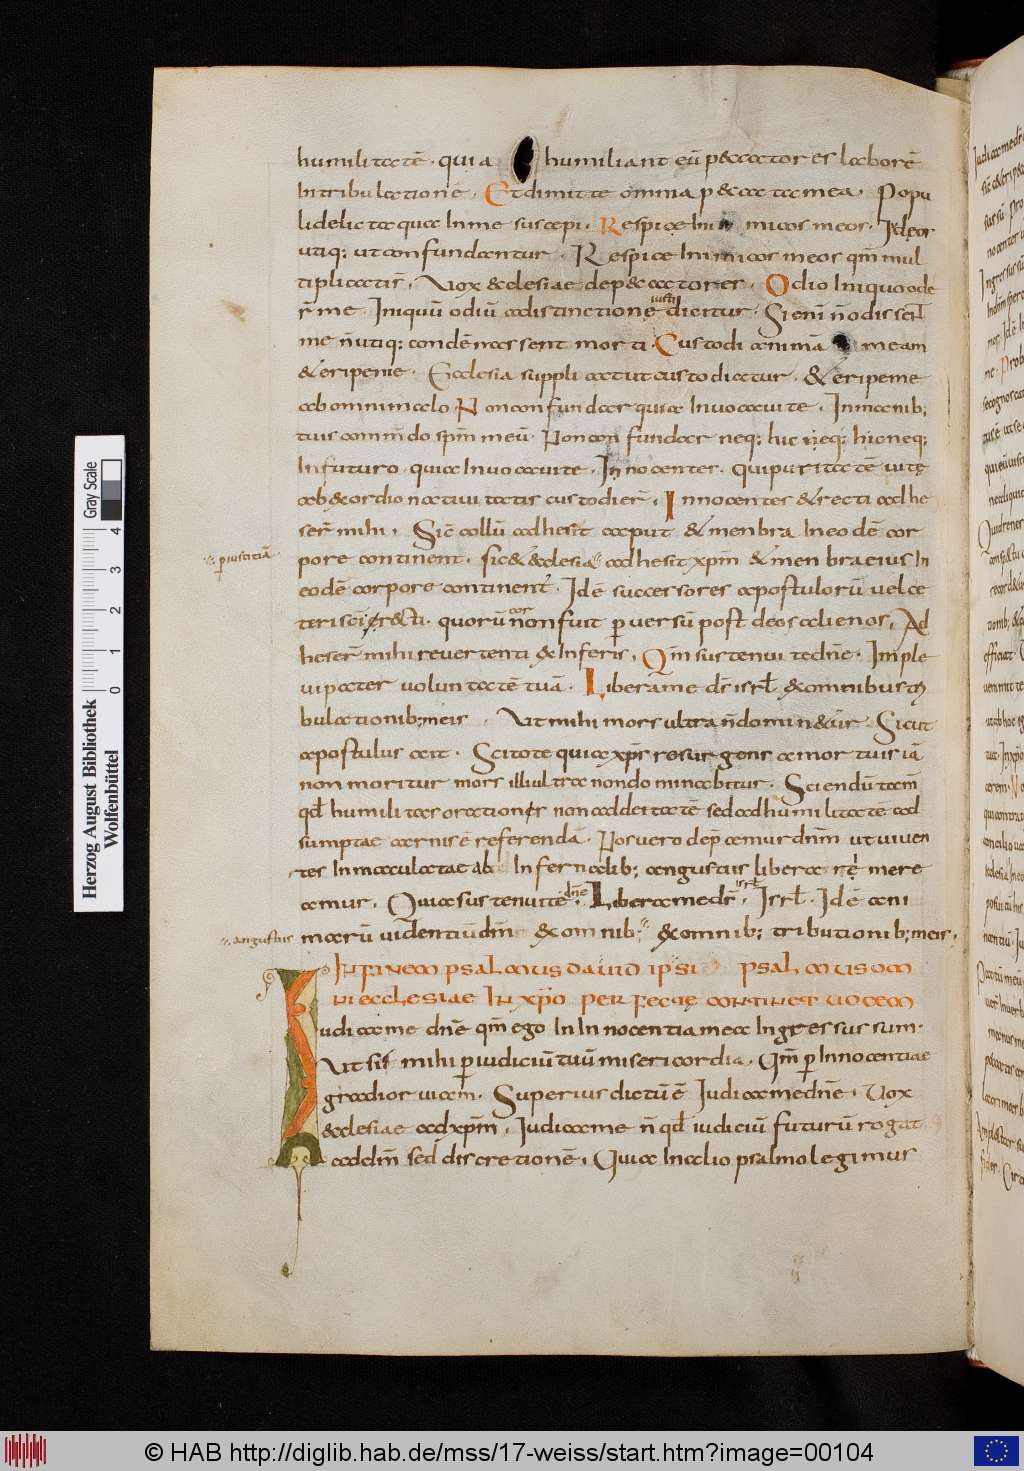 humilitatē. quia humiliant eū peccatores laborē
In tribulationē. Et dimitte omnia peccata mea. Popu
li delicta quae In me suscepi. Respice Ini micos meos. Ideor
utiq; ut confundantur. Respice Inimicos meos qm̄ mul
tiplicati s̄. Vox ecclesiae de peccatores. Odio Iniquo ode
r̄ me. Iniquū odiū ad istinctionē iusti dicitur. Si enī n̄ odissent
me n̄ utiq; condēnassent morti. Custodi animā meam
& eripe me. Ecclesia supplicat ut custodiatur. & eripe me
ab omni malo. Non confundar quia Inuocaui te. In manib;
tuis commēdo spm̄ meū. Non confundar neq; hic neq; hic neq;
In futuro. quia Inuocaui te. Innocentes. qui puritatē uitę
ab exordio natiuitatis custodier̄. Innocentes & recti adhe
ser̄ mihi. Sic collū adhesit caput & menbra In eodē cor
: p iustitiā
pore continent. sic & ecclesia adhesit xpm̄ & menbra eius In
eodē corpore continent. Idē successores apostulorū uel ce
teri sc̄i & recti. quorū cor non fuit puersū post deos alienos. Ad
heser̄ mihi reuertenti ex Inferis. Qm̄ sustenui te dn̄e. Imple
ui pater voluntatē tuā. Libera me ds̄ isrl̄ ex omnibus tri
bulationib; meis. Ut mihi mors ultra n̄ dominetur. Sicut
apostulus ait. Scitote quia xpr̄ resurgens a mortuis iā
non moritur mors illi ultra non dominabitur. Sciendū tam̄
qd̄ humilitas orationis non ad deitatē sed ad humilitatē ad
sumptae carnis ē referendā. Nos uero dep̄camur dn̄m ut uiuen
tes Inmaculatae ab Infernalib; angustiis liberare nr̄ mere
amur. Quia sustenui te dn̄e. Libera me ds̄ isrl̄. Isrl̄. Idē ani
: angustiis
marū uidentiū dm̄ ex omnib; ex omnib; tributionib; meis.
IN FINEM PSALMUS DAUID IPSI PSALMUS OM
NI ECCLESIAE IN XPO PERFECTE CONTINET UOCEM
Iudica me dn̄e qm̄ ego In Innocentia mea Ingressus sum.
Ut sis mihi p iudiciū tuū misericordia. Qm̄ p Innocentiae
gradior uiam. Superius dictū ē Iudica me dn̄e. Vox
ecclesiae ad xpm̄. Iudica me n̄ qd̄ iudiciū futurū rogat
ad dm̄ sed discretionē. Quia In alio psalmo legimus
Herzog August Bibliothek
Wolfenbüttel
Gray Scale
0 1 2 3 4
© HAB http://diglib.hab.de/mss/17-weiss/start.htm?image=00104